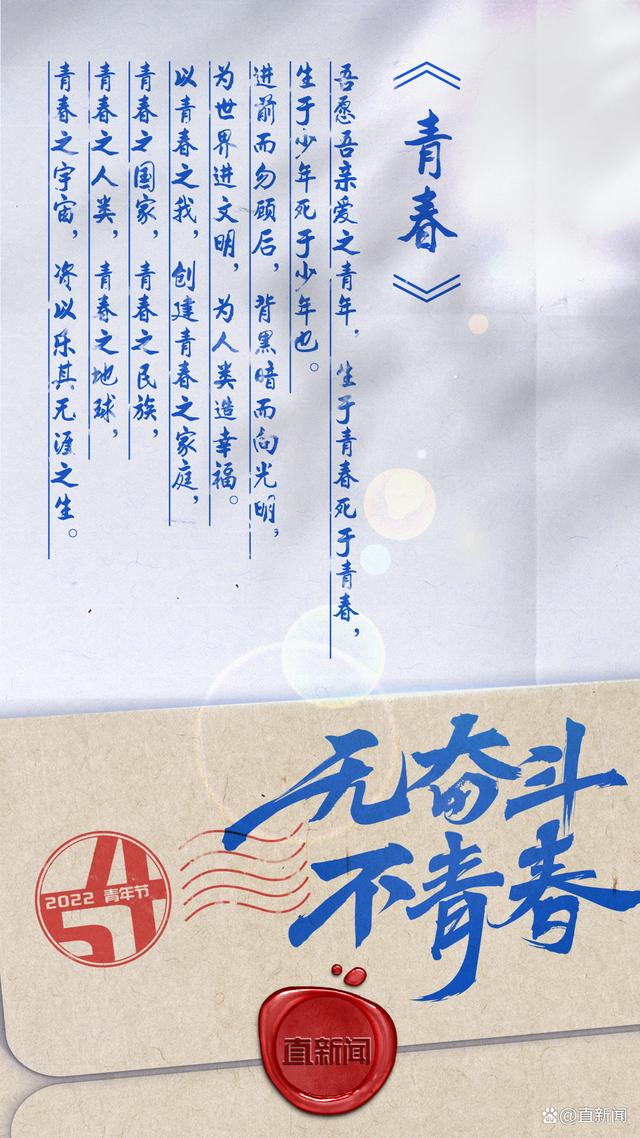 《青春》
吾愿吾亲爱之青年，生于青春死于青春，
生于少年死于少年也。
进前而勿顾后，背黑暗而向光明，
为世界进文明，为人类造幸福。
以青春之我，创建青春之家庭，
青春之国家，青春之民族，
青春之人类，青春之地球，
青春之宇宙，资以乐其无涯之生。
无奋斗
不青春
54
2022 青年节
直新闻
@直新闻